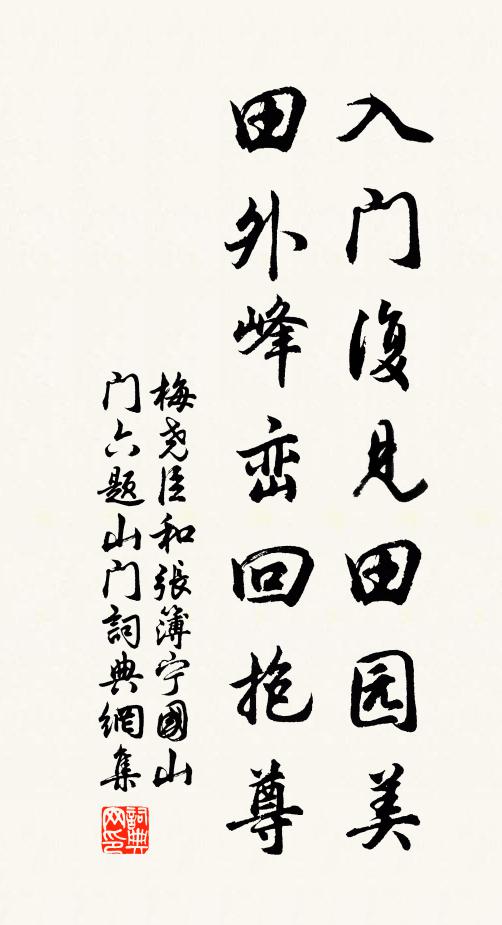 入门復见田园美
田外峰峦回抱尊
梅尧臣和張簿宁國山
门六题山门詞典網集
詞典网印